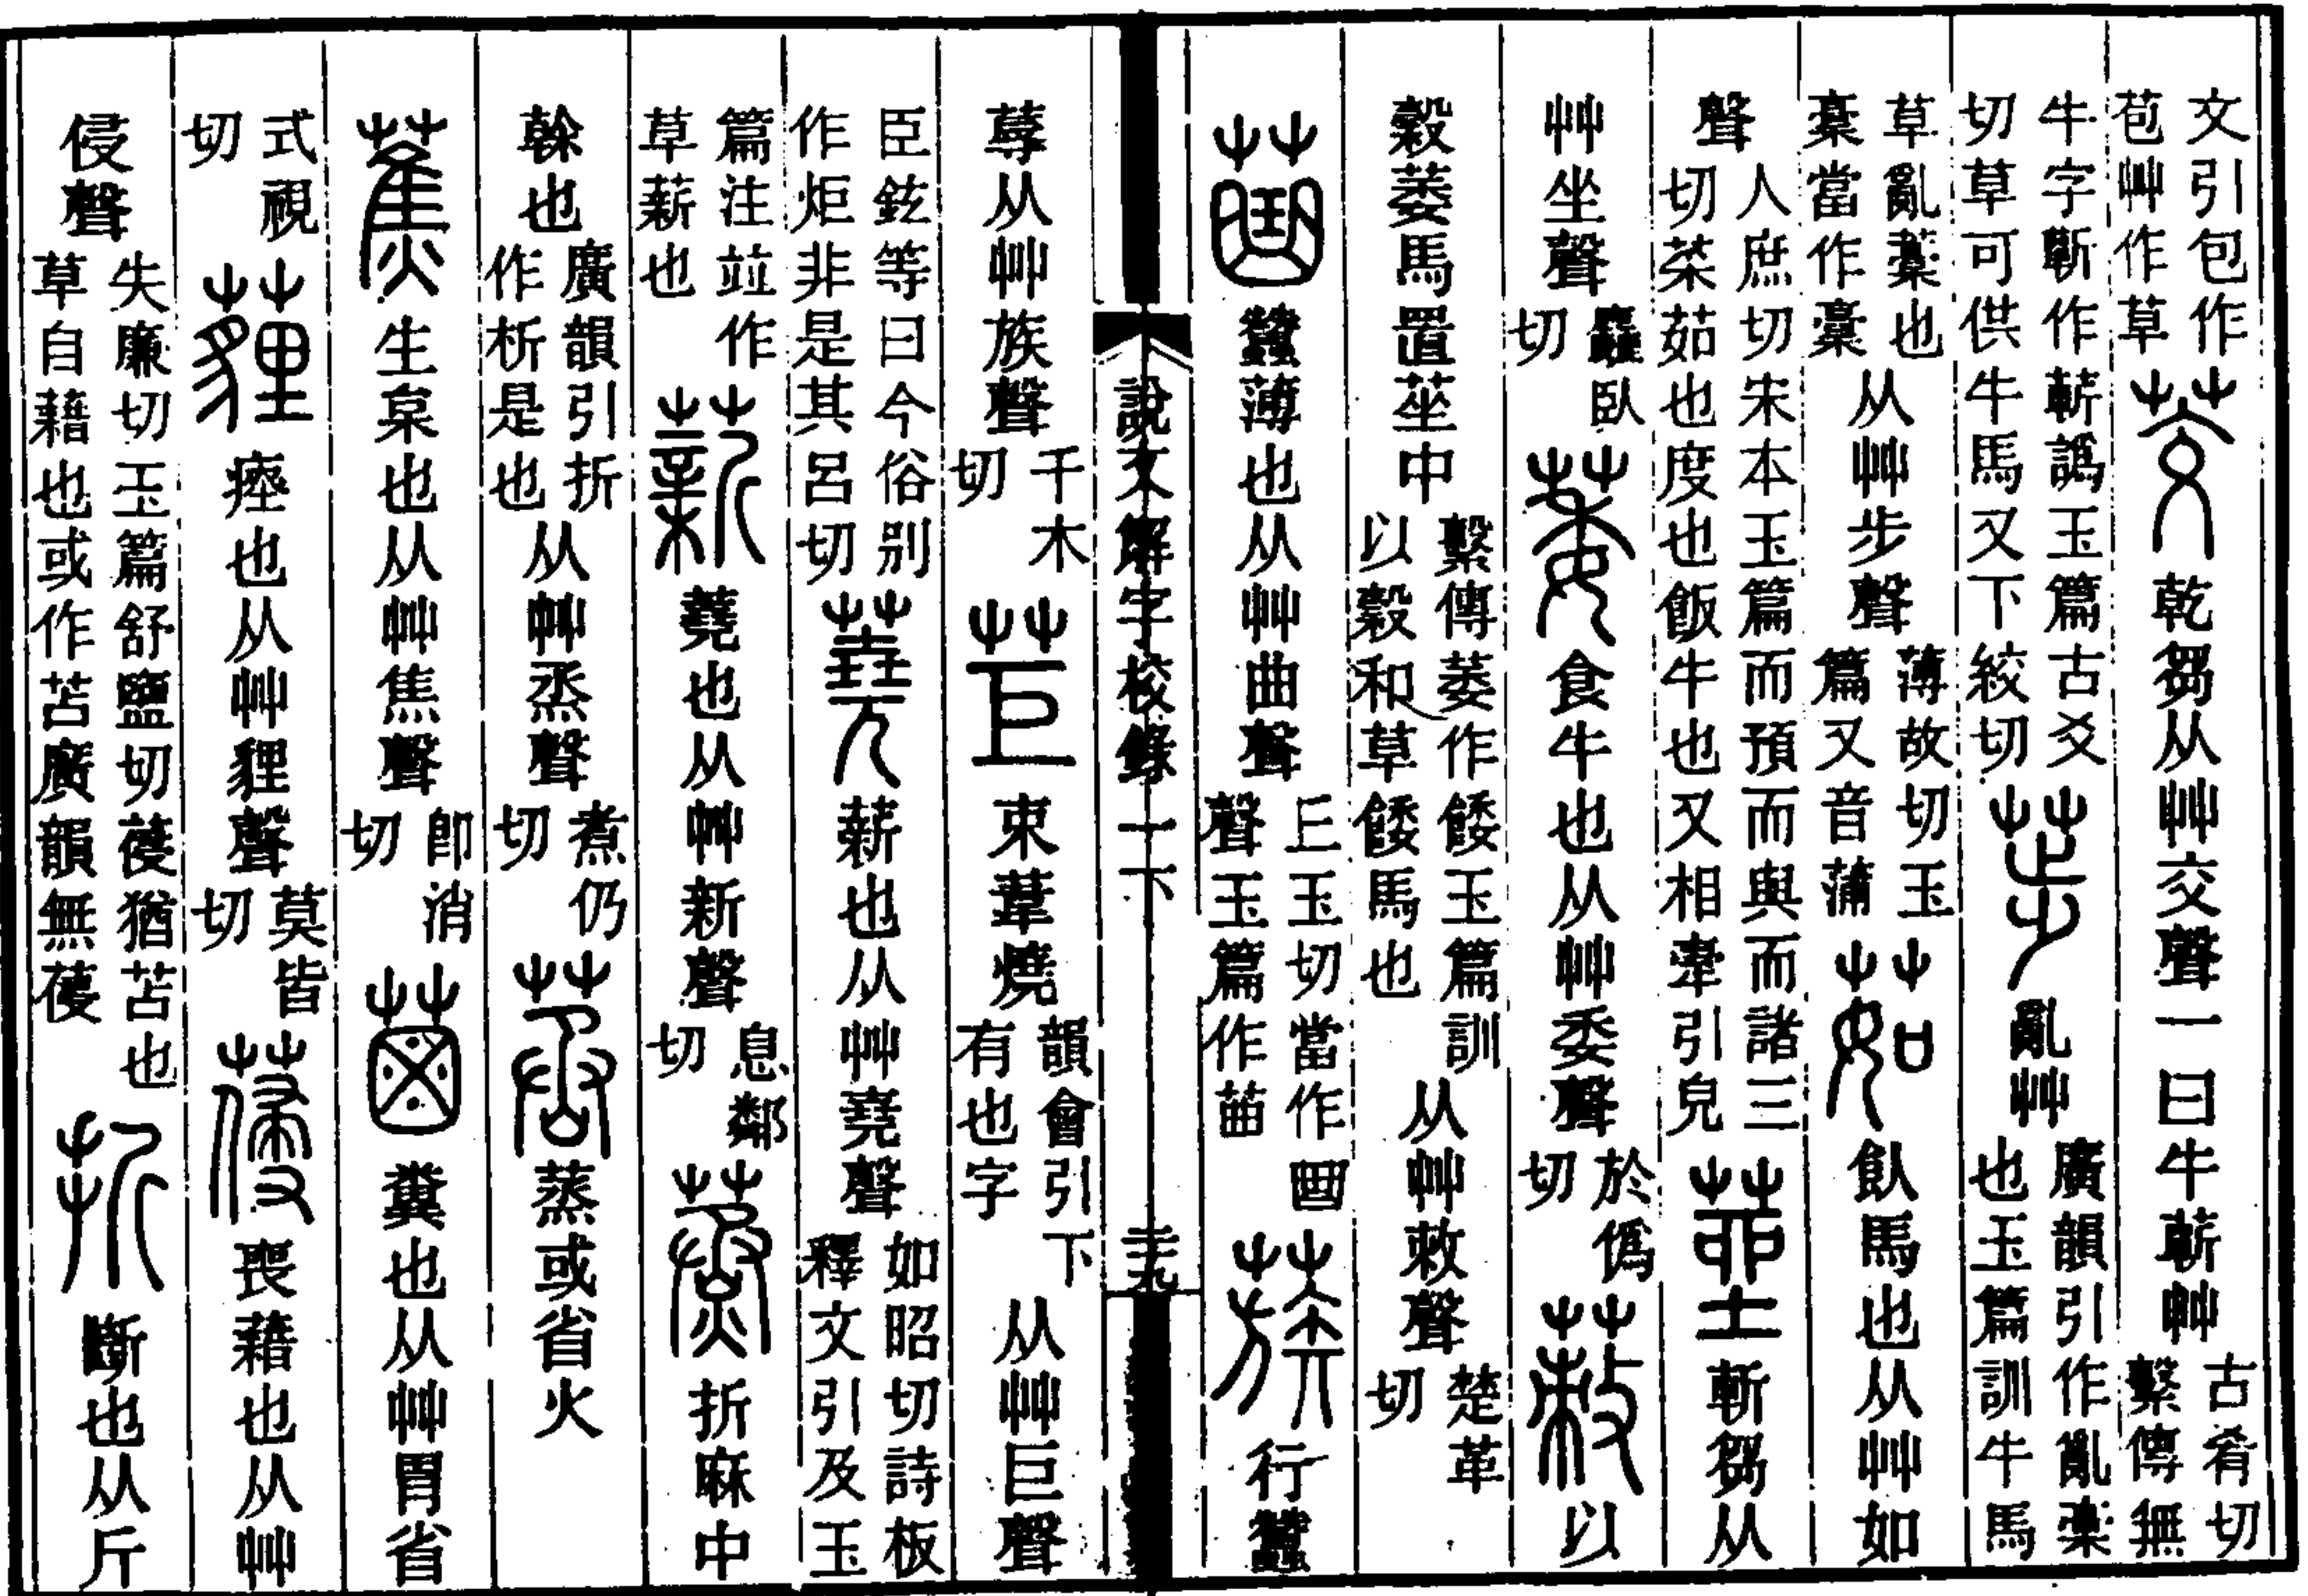 文引包作苞艸作草茭乾芻从艸交聲一曰牛蘄艸古肴切繫傳無
牛字蘄作蘄譌玉篇古爻切草可供牛馬又下絞切荹亂艸廣韻引作亂稾也玉篇訓牛馬
草亂藁也稾當作稾从艸步聲薄故切玉篇又音蒲茹飤馬也从艸如
聲人庶切宋本玉篇而預而與而諸三切菜茹也度也飯牛也又相牽引皃莝斬芻从
艸坐聲麤臥切萎食牛也从艸委聲於僞切蓛以
穀萎馬置莝中繫傳萎作餧玉篇訓以穀和草餧馬也从艸敕聲楚革切
蠶薄也从艸曲聲丘玉切當作𠚖聲玉篇作苗蔟行蠶
說文解字校錄一下
蓐从艸族聲千木切苣束葦燒韻會引下有也字从艸巨聲
臣鉉等曰今俗别作炬非是其呂切蕘薪也从艸堯聲如昭切詩板釋文引及玉
篇注竝作草薪也薪蕘也从艸新聲息鄰切蒸折麻中
榦也廣韻引折作析是也从艸烝聲煮仍切蒸或省火
蕉生枲也从艸焦聲卽消切糞也从艸胃省
式視切薶瘞也从艸貍聲莫皆切葠喪藉也从艸
侵聲失廉切玉篇舒鹽切葠猶苫也草自藉也或作苫廣韻無葠折斷也从斤